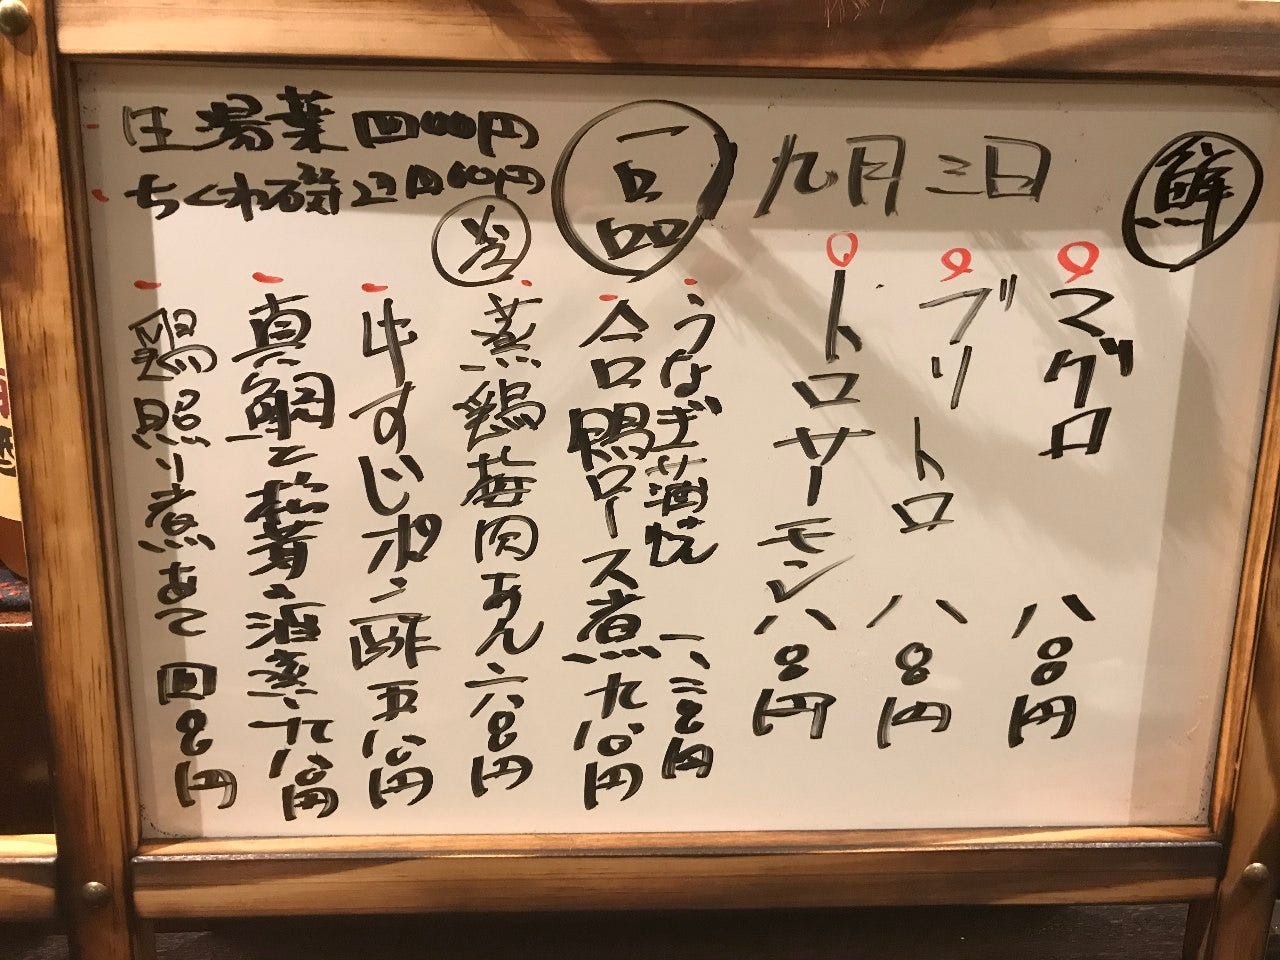 鮮
九月三日
マグロ 八〇〇円
ブリトロ 八〇〇円
トロサーモン 八〇〇円
一品
うなぎ蒲焼
合鴨ロース煮 九八〇円
蒸鶏梅肉あん 六〇〇円
牛すじポン酢 五八〇円
真鯛と松茸の酒蒸 九八〇円
鶏照り煮あて 四〇〇円
生湯葉 四〇〇円
ちくわ磯辺